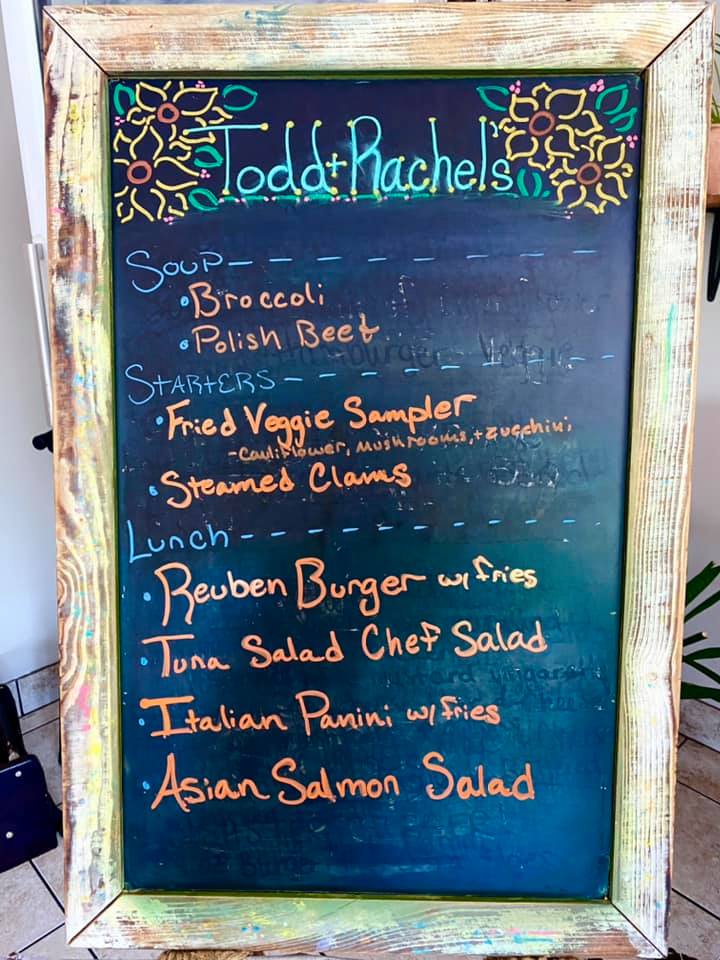 Todd + Rachel's
Soup
• Broccoli
• Polish Beet
Starters
• Fried Veggie Sampler
- Cauliflower, mushrooms, + zucchini,
• Steamed Clams
Lunch
• Reuben Burger w/ fries
• Tuna Salad Chef Salad
• Italian Panini w/ fries
• Asian Salmon Salad